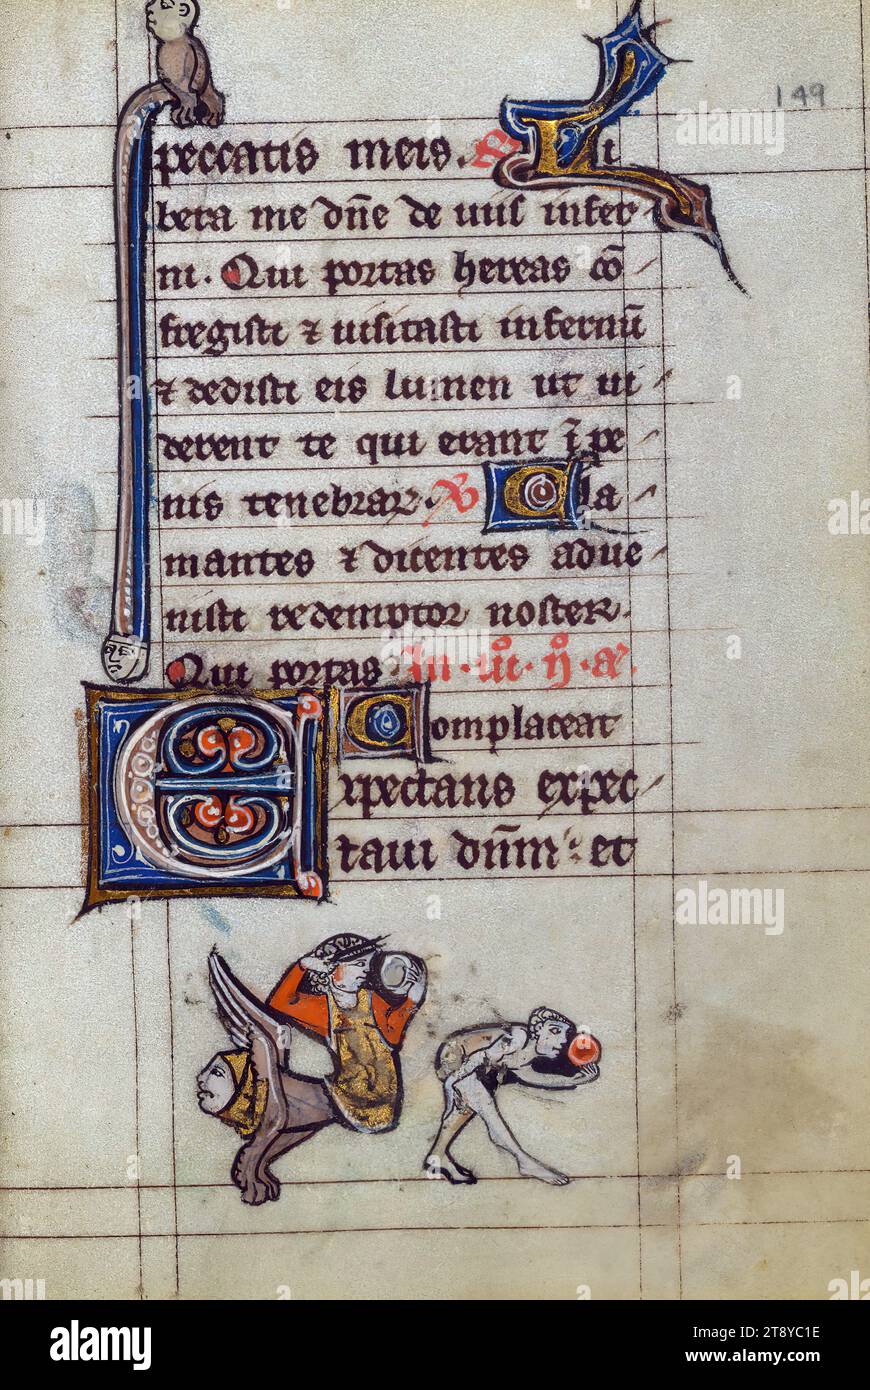 149
peccatis meis. R Li
bera me dn̄e de uiis infer
ni. Qui portas hereas cō
fregisti ⁊ uisitasti infernū
⁊ dedisti eis lumen ut ui
derent te qui erant ī pe
nis tenebrar. V Cla
mantes ⁊ dicentes adue
nisti redemptor noster.
Qui portas
Complaceat
Expectans expec
taui dn̄m et
alamy
Image ID: 2T8YC1E
www.alamy.com